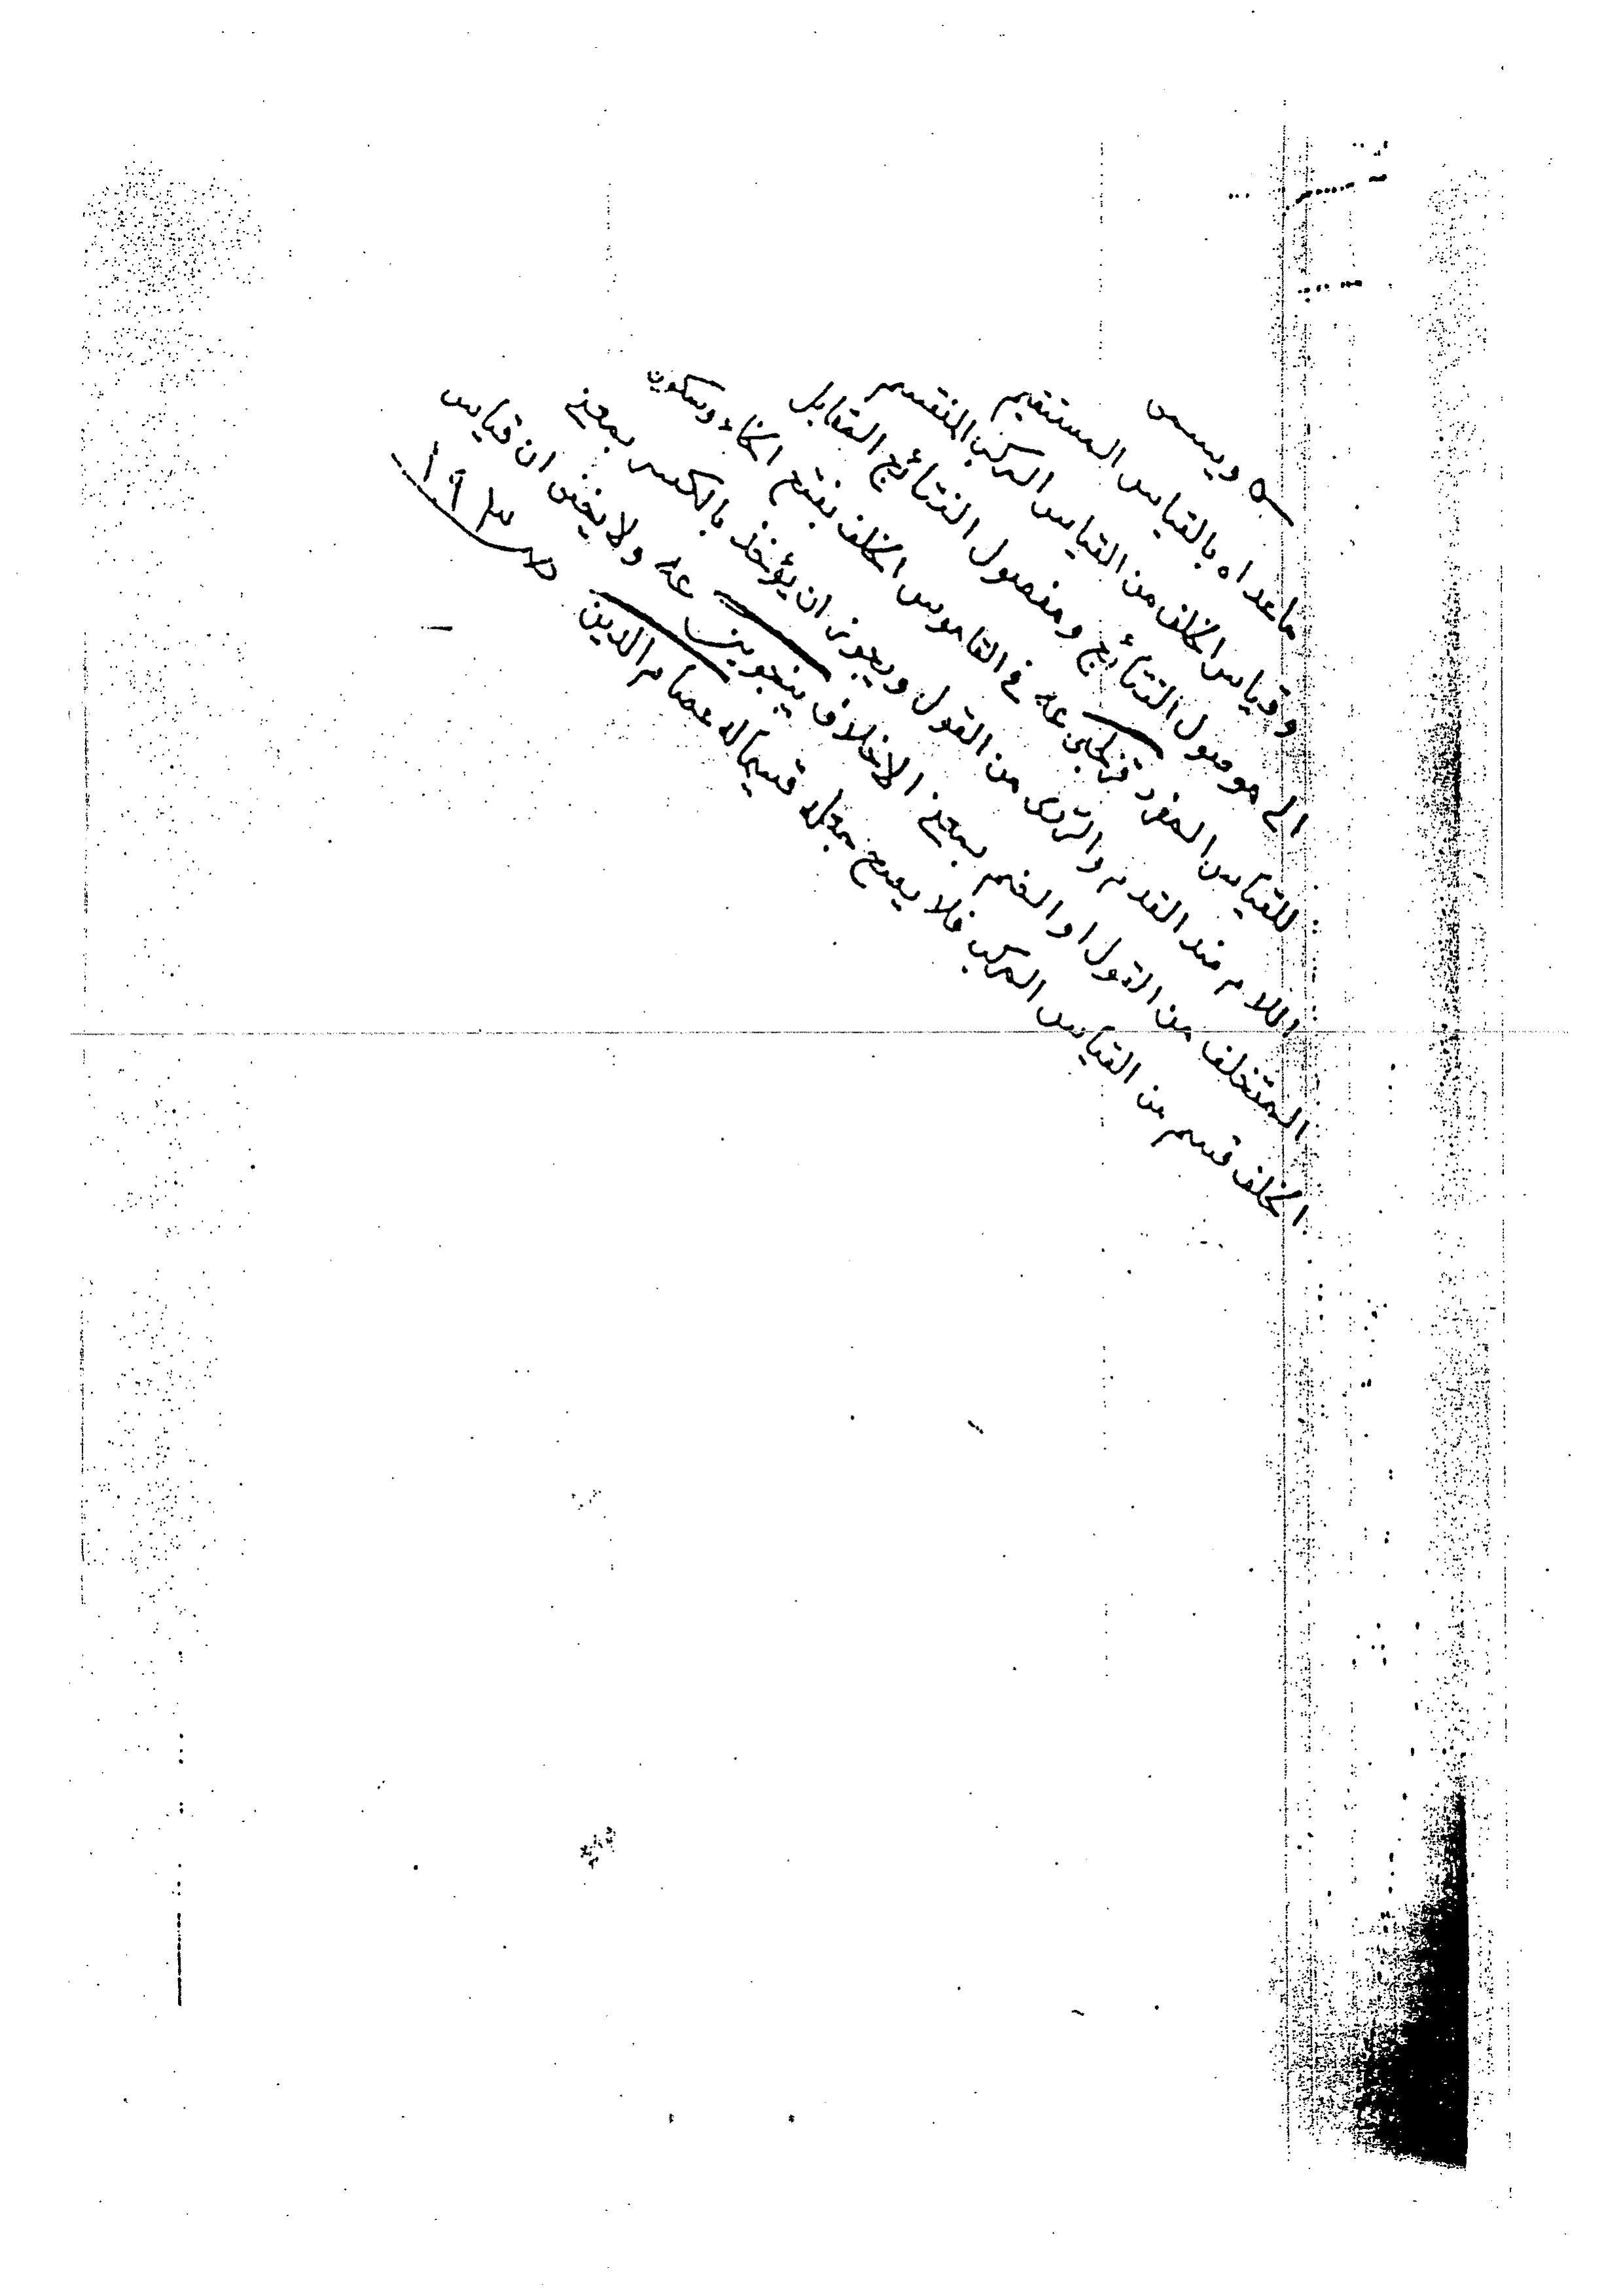 ويسمى
ما عداه بالقياس المستقيم
وقياس الخلف من القياس المركب المنقسم
الى موصول النتائج ومفصول النتائج المقابل
للقياس المفرد عه في القاموس الخلف بفتح الخاء وسكون
اللام ضد القدم والردى من القول ويجوز ان يؤخذ بالكسر بمعنى
المتخلف من القول او الضم بمعنى الاخلاف عه ولا يخفى ان قياس
الخلف قسم من القياس المركب فلا يصح جعله قسيما له عصام الدين ص ١٩٣